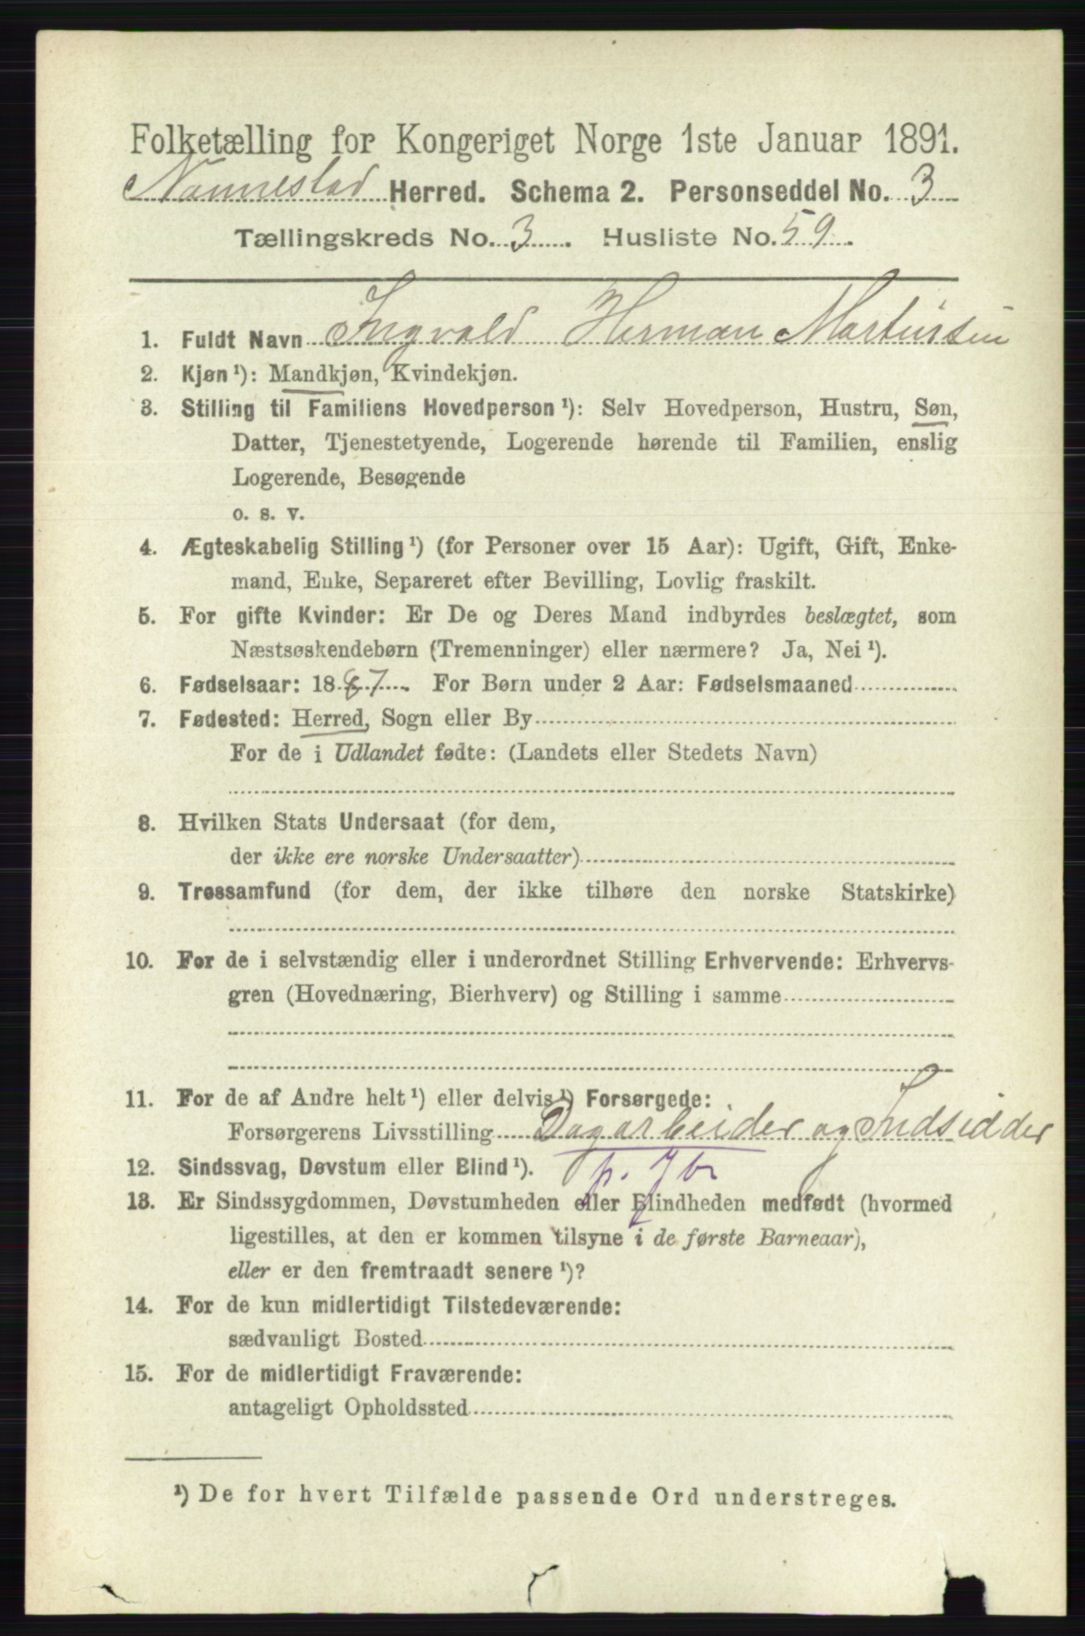 Folketælling for Kongeriget Norge 1ste Januar 1891.
Nannestad Herred. Schema 2. Personseddel No. 3
Tællingskreds No. 3. Husliste No. 59.
1. Fuldt Navn Ingvald Herman Martinsen
2. Kjøn ¹): Mandkjøn, Kvindekjøn.
3. Stilling til Familiens Hovedperson ¹): Selv Hovedperson, Hustru, Søn,
Datter, Tjenestetyende, Logerende hørende til Familien, enslig
Logerende, Besøgende
o. s. v.
4. Ægteskabelig Stilling ¹) (for Personer over 15 Aar): Ugift, Gift, Enke-
mand, Enke, Separeret efter Bevilling, Lovlig fraskilt.
5. For gifte Kvinder: Er De og Deres Mand indbyrdes beslægtet, som
Næstsøskendebørn (Tremenninger) eller nærmere? Ja, Nei ¹).
6. Fødselsaar: 1887. For Børn under 2 Aar: Fødselsmaaned
7. Fødested: Herred, Sogn eller By
For de i Udlandet fødte: (Landets eller Stedets Navn)
8. Hvilken Stats Undersaat (for dem,
der ikke ere norske Undersaatter)
9. Trossamfund (for dem, der ikke tilhøre den norske Statskirke)
10. For de i selvstændig eller i underordnet Stilling Erhvervende: Erhvervs-
gren (Hovednæring, Bierhverv) og Stilling i samme
11. For de af Andre helt ¹) eller delvis ¹) Forsørgede:
Forsørgerens Livsstilling Dagarbeider og Indsidder
12. Sindssvag, Døvstum eller Blind ¹).
13. Er Sindssygdommen, Døvstumheden eller Blindheden medfødt (hvormed
ligestilles, at den er kommen tilsyne i de første Barneaar),
eller er den fremtraadt senere ¹)?
14. For de kun midlertidigt Tilstedeværende:
sædvanligt Bosted
15. For de midlertidigt Fraværende:
antageligt Opholdssted
¹) De for hvert Tilfælde passende Ord understreges.